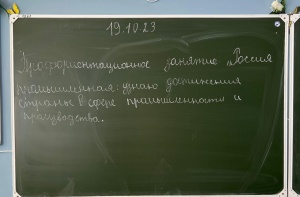 19.10.23
Профориентационное занятие „Россия
промышленная: узнаю достижения
страны в сфере промышленности и
производства.